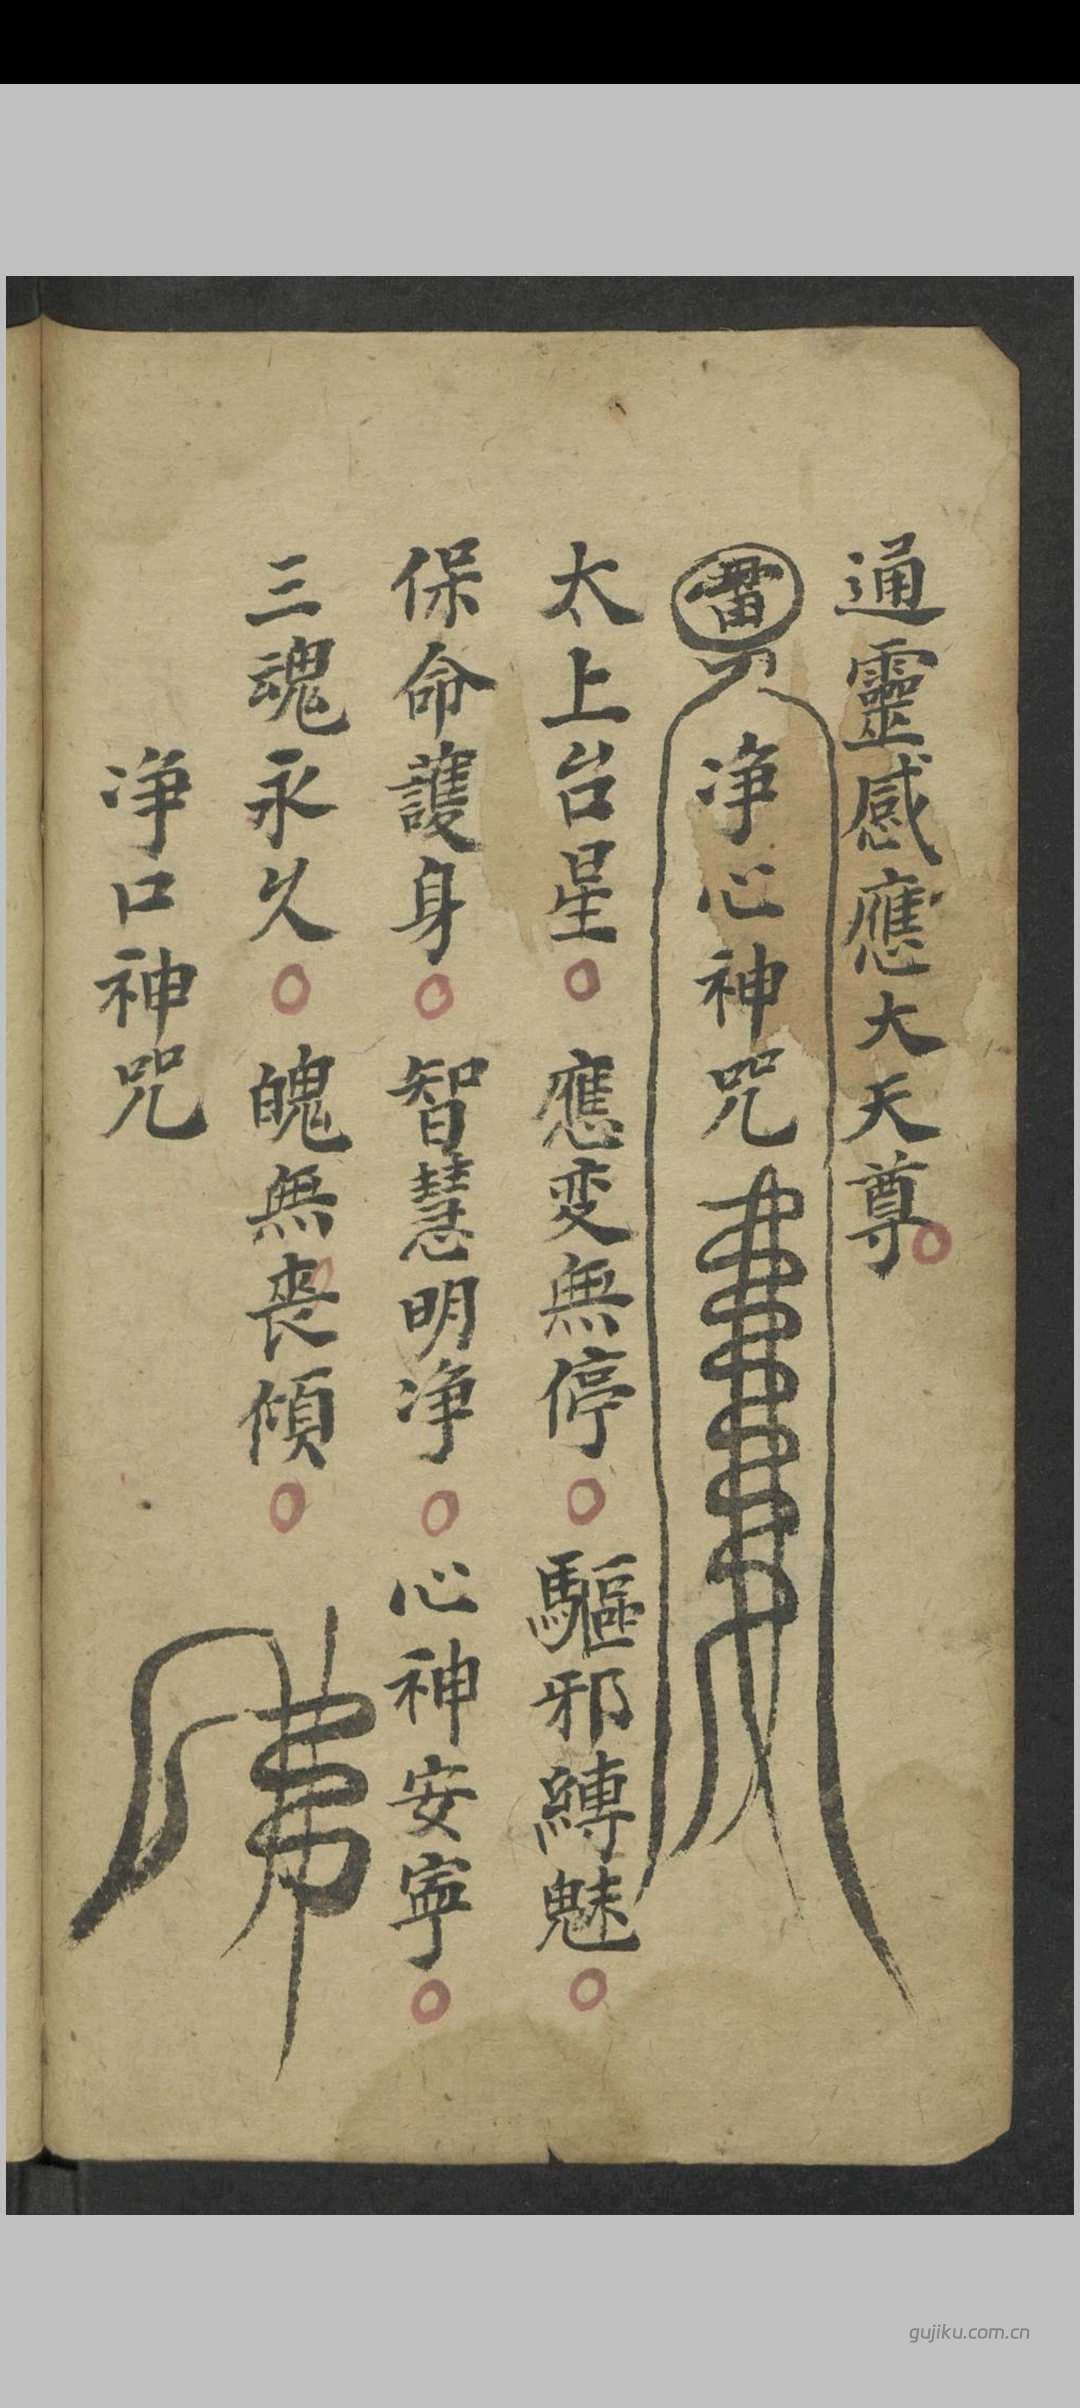 通靈感應大天尊
雷
淨心神咒
太上台星 應変無停 驅邪縛魅
保命護身 智慧明净 心神安寧
三魂永久 魄無喪傾
净口神咒
gujiku.com.cn